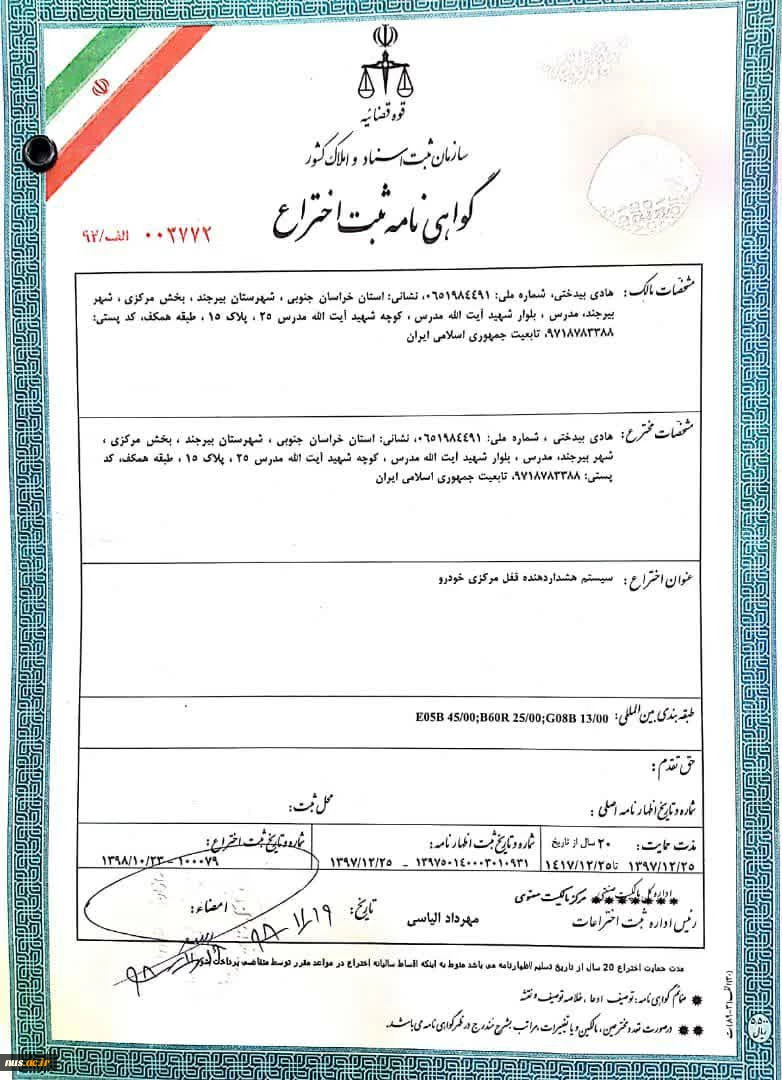 قوه قضائیه
سازمان ثبت اسناد و املاک کشور
گواهی نامه ثبت اختراع
۰۰۲۷۷۲ الف/۹۲
مشخصات مالک: هادی بیدختی، شماره ملی: ۰۶۵۱۹۸۴۴۹۱، نشانی: استان خراسان جنوبی ، شهرستان بیرجند ، بخش مرکزی ، شهر
بیرجند، مدرس ، بلوار شهید آیت الله مدرس ، کوچه شهید آیت الله مدرس ۲۵ ، پلاک ۱۵ ، طبقه همکف، کد پستی:
۹۷۱۸۷۸۳۳۸۸، تابعیت جمهوری اسلامی ایران
مشخصات مخترع: هادی بیدختی ، شماره ملی: ۰۶۵۱۹۸۴۴۹۱، نشانی: استان خراسان جنوبی ، شهرستان بیرجند ، بخش مرکزی ،
شهر بیرجند، مدرس ، بلوار شهید آیت الله مدرس ، کوچه شهید آیت الله مدرس ۲۵ ، پلاک ۱۵ ، طبقه همکف، کد
پستی: ۹۷۱۸۷۸۳۳۸۸، تابعیت جمهوری اسلامی ایران
عنوان اختراع: سیستم هشداردهنده قفل مرکزی خودرو
طبقه بندی بین المللی: E05B 45/00;B60R 25/00;G08B 13/00
حق تقدم:
شماره و تاریخ اظهارنامه اصلی: محل ثبت:
مدت حمایت: ۲۰ سال از تاریخ
۱۳۹۷/۱۲/۲۵ تا ۱۴۱۷/۱۲/۲۵
شماره و تاریخ ثبت اظهارنامه:
۱۳۹۷۵۰۱۴۰۰۰۳۰۱۰۹۳۱ - ۱۳۹۷/۱۲/۲۵
شماره و تاریخ ثبت اختراع:
۱۰۰۰۷۹ - ۱۳۹۸/۱۰/۲۳
اداره کل مالکیت صنعتی مرکز مالکیت معنوی
رئیس اداره ثبت اختراعات مهرداد الیاسی تاریخ: ۹۸/۱۱/۱۹ امضاء:
مدت حمایت اختراع 20 سال از تاریخ تسلیم اظهارنامه می باشد منوط به اینکه اقساط سالیانه اختراع در مواعد مقرر توسط متقاضی پرداخت شود.
✸ ضمائم گواهی نامه: توصیف ادعا ، خلاصه توصیف و نقشه
✸ ✸ در صورت تعدد مخترعین، مالکین و یا تغییرات، مراتب بشرح مندرج در ظهر گواهی نامه می باشد.
nus.ac.ir